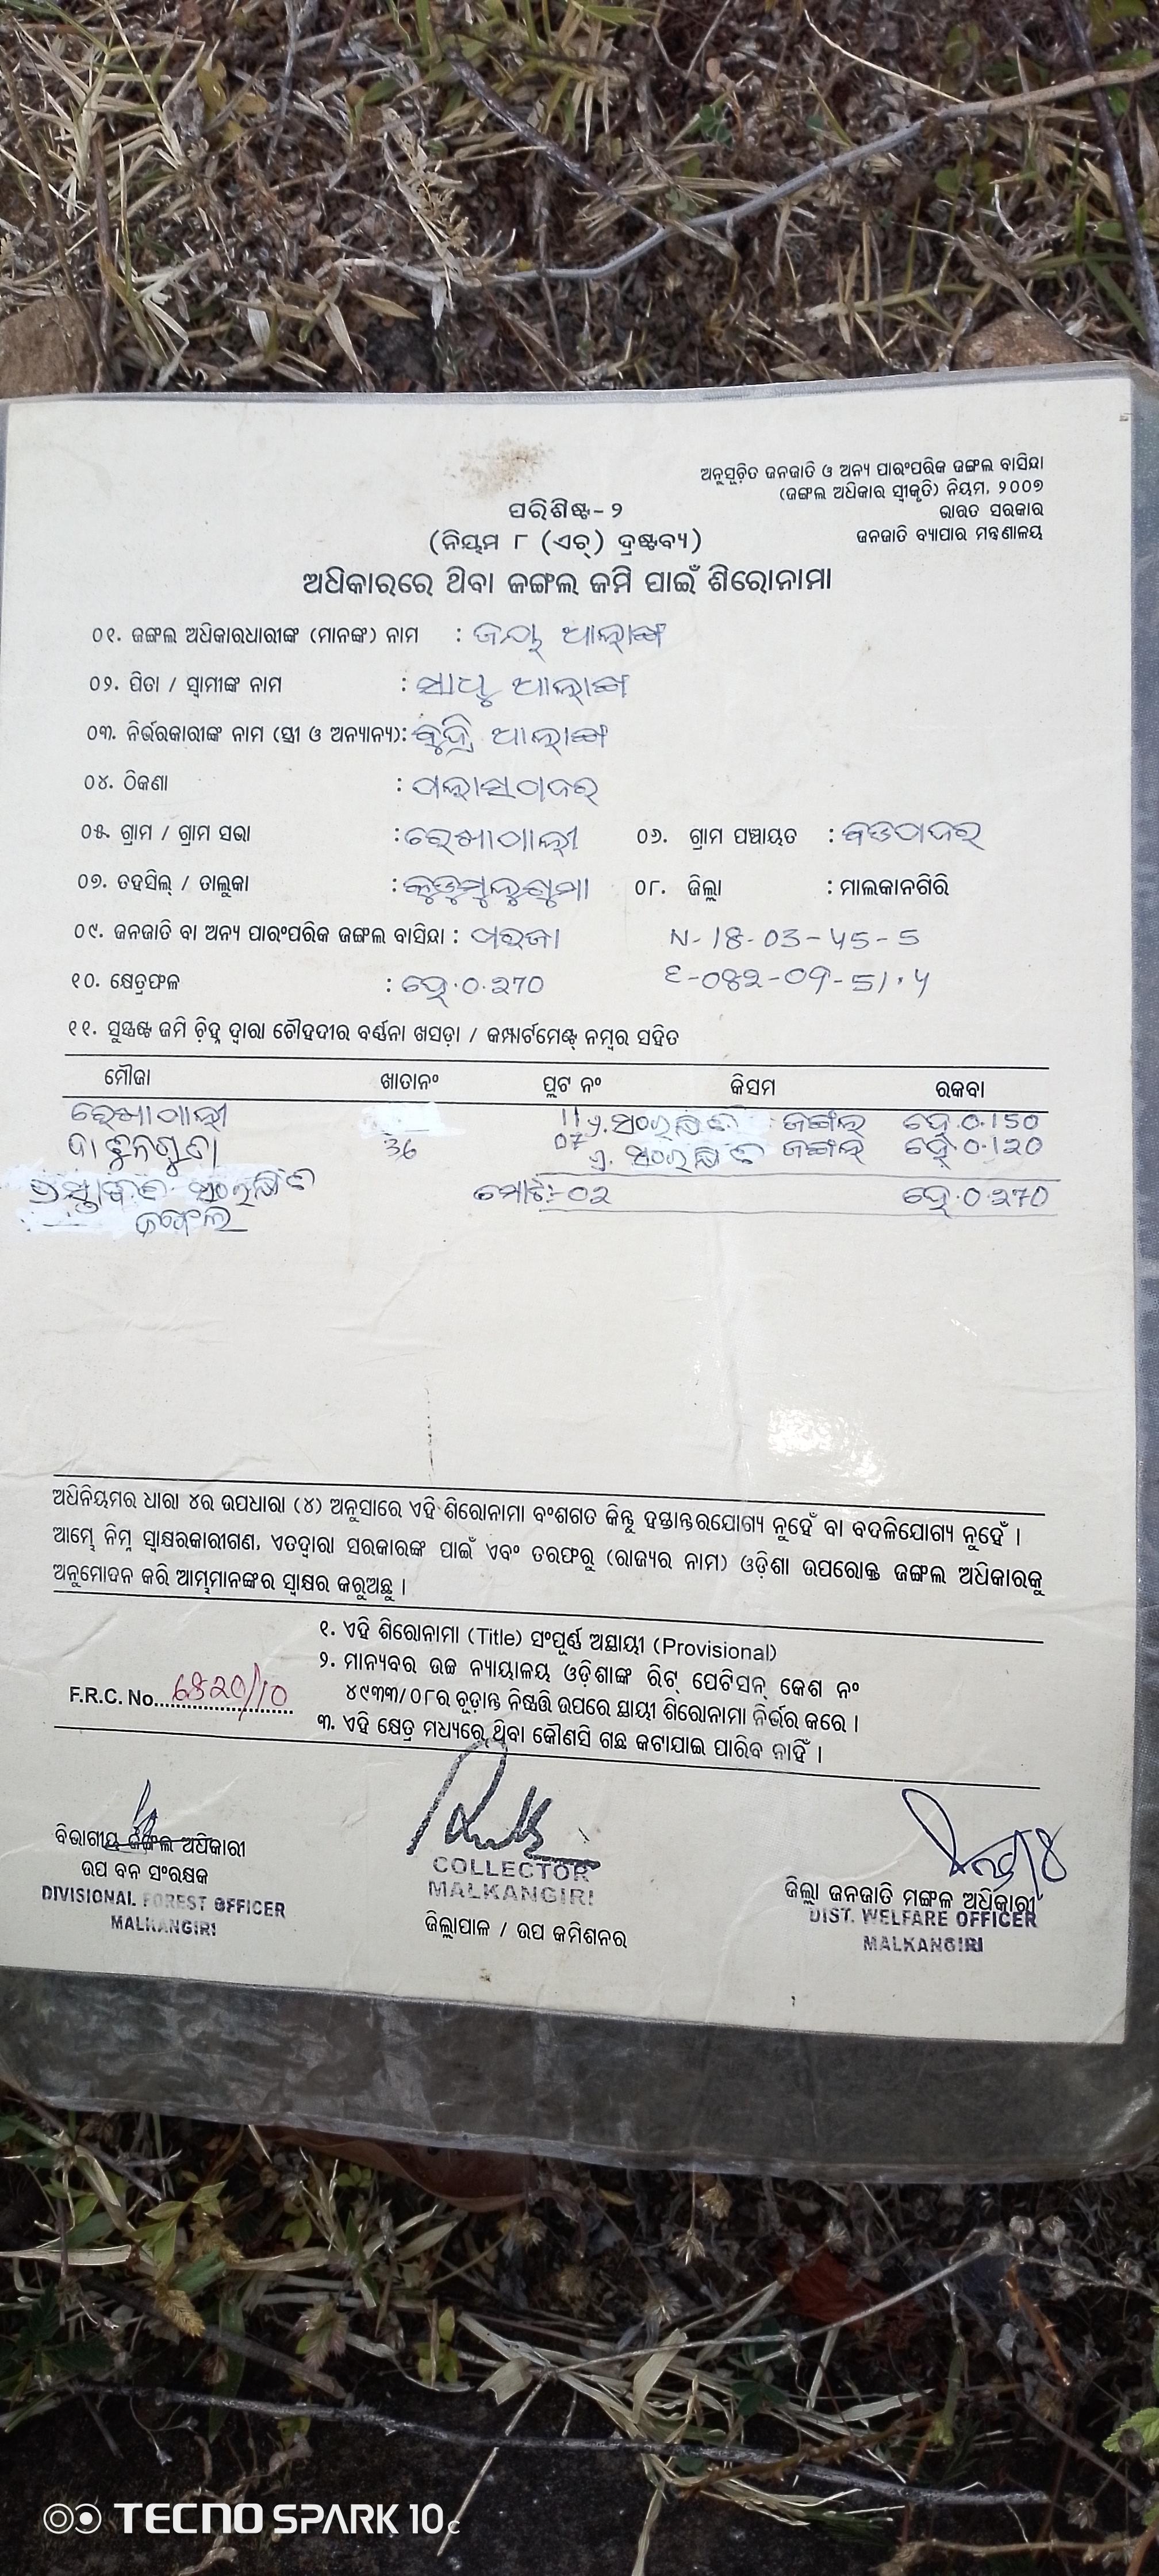 ଅନୁସୂଚିତ ଜନଜାତି ଓ ଅନ୍ୟ ପାରଂପରିକ ଜଙ୍ଗଲ ବାସିନ୍ଦା
(ଜଙ୍ଗଲ ଅଧିକାର ସ୍ୱୀକୃତି) ନିୟମ, ୨୦୦୭
ଭାରତ ସରକାର
ଜନଜାତି ବ୍ୟାପାର ମନ୍ତ୍ରଣାଳୟ
ପରିଶିଷ୍ଟ-୨
(ନିୟମ ୮ (ଏଚ୍) ଦ୍ରଷ୍ଟବ୍ୟ)
ଅଧିକାରରେ ଥିବା ଜଙ୍ଗଲ ଜମି ପାଇଁ ଶିରୋନାମା
୦୧. ଜଙ୍ଗଲ ଅଧିକାରଧାରୀଙ୍କ (ମାନଙ୍କ) ନାମ :
୦୨. ପିତା / ସ୍ୱାମୀଙ୍କ ନାମ : ସାଧୁ
୦୩. ନିର୍ଭରକାରୀଙ୍କ ନାମ (ସ୍ତ୍ରୀ ଓ ଅନ୍ୟାନ୍ୟ):
୦୪. ଠିକଣା : ପଲାସପଦର
୦୫. ଗ୍ରାମ / ଗ୍ରାମ ସଭା : ରେଖାପାଲୀ ୦୬. ଗ୍ରାମ ପଞ୍ଚାୟତ : ବଡପଦର
୦୭. ତହସିଲ୍ / ତାଲୁକା : କୁଡୁମୁଲୁଗୁମା ୦୮. ଜିଲ୍ଲା : ମାଲକାନଗିରି
୦୯. ଜନଜାତି ବା ଅନ୍ୟ ପାରଂପରିକ ଜଙ୍ଗଲ ବାସିନ୍ଦା : ପରଜା N-18-03-45-5
୧୦. କ୍ଷେତ୍ରଫଳ : ହେ.0.270
୧୧. ସୁସ୍ପଷ୍ଟ ଜମି ଚିହ୍ନ ଦ୍ୱାରା ଚୌହଦୀର ବର୍ଣ୍ଣନା ଖସଡ଼ା / କମ୍ପାର୍ଟମେଣ୍ଟ୍ ନମ୍ବର ସହିତ
ମୌଜା ଖାତାନଂ ପ୍ଲଟ ନଂ କିସମ ରକବା
ରେଖାପାଲୀ 11 ଜଙ୍ଗଲ ହେ.0.150
36 07 ଜଙ୍ଗଲ ହେ.0.120
ପ୍ରସ୍ତାବିତ ସଂରକ୍ଷିତ ମୋଟ:-02 ହେ.0.270
ଜଙ୍ଗଲ
ଅଧିନିୟମର ଧାରା ୪ର ଉପଧାରା (୪) ଅନୁସାରେ ଏହି ଶିରୋନାମା ବଂଶଗତ କିନ୍ତୁ ହସ୍ତାନ୍ତରଯୋଗ୍ୟ ନୁହେଁ ବା ବଦଳିଯୋଗ୍ୟ ନୁହେଁ ।
ଆମ୍ଭେ ନିମ୍ନ ସ୍ୱାକ୍ଷରକାରୀଗଣ, ଏତଦ୍ୱାରା ସରକାରଙ୍କ ପାଇଁ ଏବଂ ତରଫରୁ (ରାଜ୍ୟର ନାମ) ଓଡ଼ିଶା ଉପରୋକ୍ତ ଜଙ୍ଗଲ ଅଧିକାରକୁ
ଅନୁମୋଦନ କରି ଆମ୍ଭମାନଙ୍କର ସ୍ୱାକ୍ଷର କରୁଅଛୁ ।
୧. ଏହି ଶିରୋନାମା (Title) ସଂପୂର୍ଣ୍ଣ ଅସ୍ଥାୟୀ (Provisional)
୨. ମାନ୍ୟବର ଉଚ୍ଚ ନ୍ୟାୟାଳୟ ଓଡ଼ିଶାଙ୍କ ରିଟ୍ ପେଟିସନ୍ କେଶ ନଂ
୪୯୩୩/୦୮ର ଚୂଡ଼ାନ୍ତ ନିଷ୍ପତ୍ତି ଉପରେ ସ୍ଥାୟୀ ଶିରୋନାମା ନିର୍ଭର କରେ ।
F.R.C. No.
୩. ଏହି କ୍ଷେତ୍ର ମଧ୍ୟରେ ଥିବା କୌଣସି ଗଛ କଟାଯାଇ ପାରିବ ନାହିଁ ।
ବିଭାଗୀୟ ଜଙ୍ଗଲ ଅଧିକାରୀ
ଉପ ବନ ସଂରକ୍ଷକ
DIVISIONAL FOREST OFFICER
MALKANGIRI
COLLECTOR
MALKANGIRI
ଜିଲ୍ଲାପାଳ / ଉପ କମିଶନର
ଜିଲ୍ଲା ଜନଜାତି ମଙ୍ଗଳ ଅଧିକାରୀ
DIST. WELFARE OFFICER
MALKANGIRI
TECNO SPARK 10c